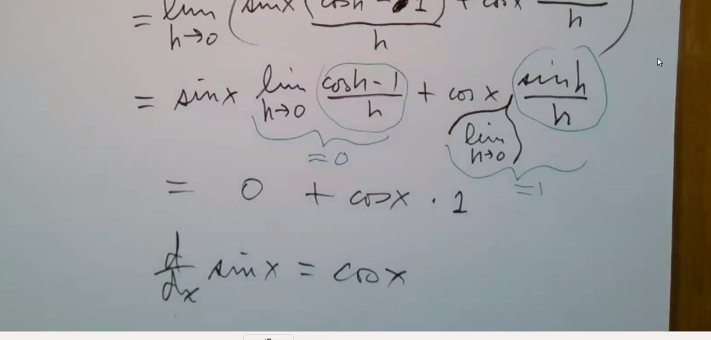 = lim h→0 (sinx (cosh - 1)/h + cosx /h)
= sinx lim h→0 (cosh-1)/h + cosx lim h→0 sinh/h
=0
=1
= 0 + cosx · 1
d/dx sinx = cosx